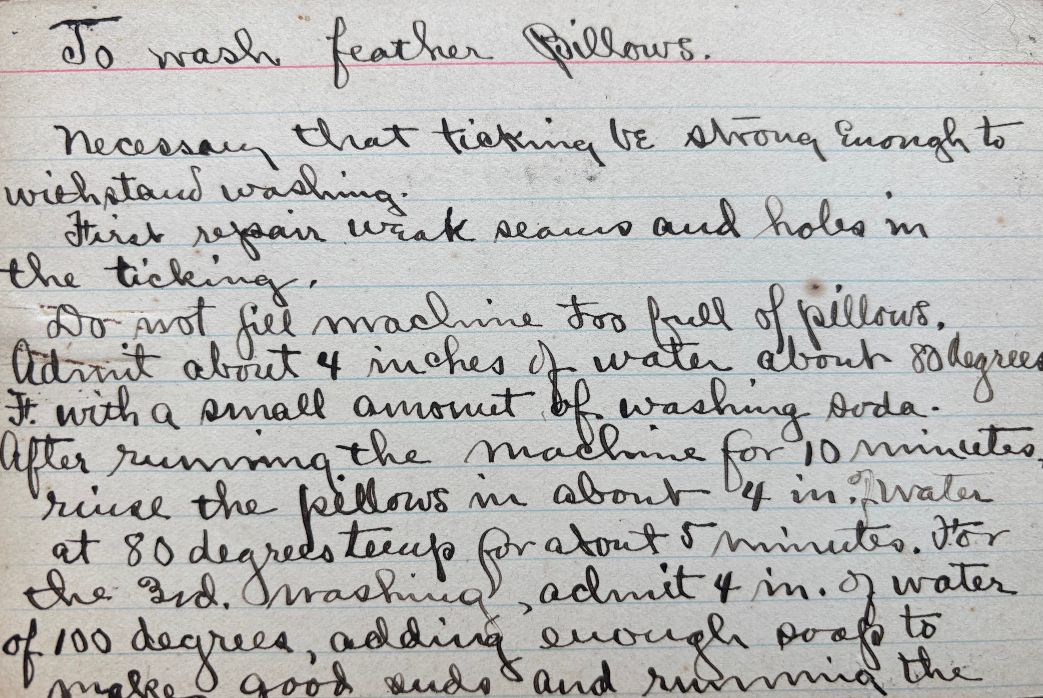 To wash feather Pillows.
Necessary that ticking be strong Enough to
withstand washing.
First repair weak seams and holes in
the ticking.
Do not fill machine too full of pillows.
Admit about 4 inches of water about 80 degrees
F. with a small amount of washing soda.
After running the machine for 10 minutes,
rinse the pillows in about 4 in. of water
at 80 degrees temp for about 5 minutes. For
the 3rd. washing, admit 4 in. of water
of 100 degrees, adding enough soap to
make good suds and running the